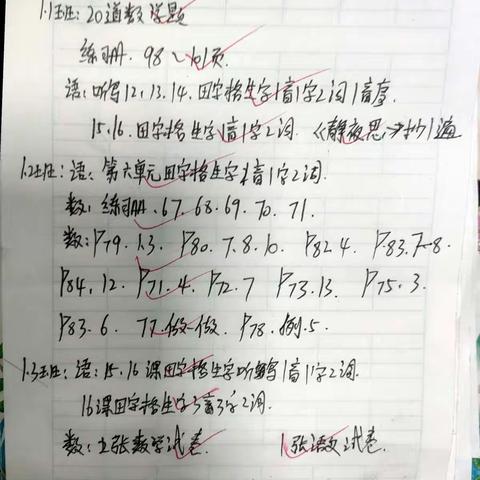 1.1班:20道数学题
练习册.98~101页
语:听写12.13.14.田字格生字1音1字2词1音序.
15.16.田字格生字1音1字2词.《静夜思》抄1遍
1.2班:语:第六单元田字格生字1音1字2词.
数:练习册.67.68.69.70.71.
数:P79.1.3. P80.7.8.10. P82.4. P.83.7-8.
P84.12. P71.4. P72.7 P73.13. P75.3.
P83.6. 77.做一做. P78.例.5.
1.3班:语:15.16课田字格生字听写1音1字2词.
16课田字格生字3音3字2词.
数:2张数学试卷. 1张语文试卷.